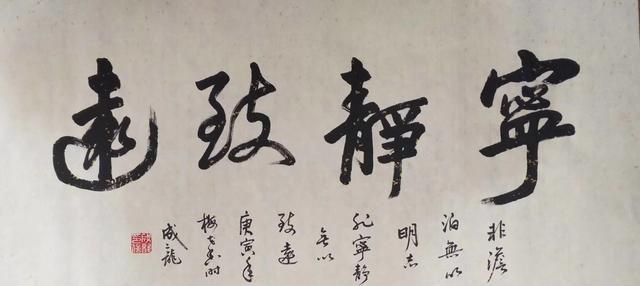 寧靜致遠
非澹
泊無以
明志
非寧靜
無以
致遠
庚寅年
梅花香時
成龍